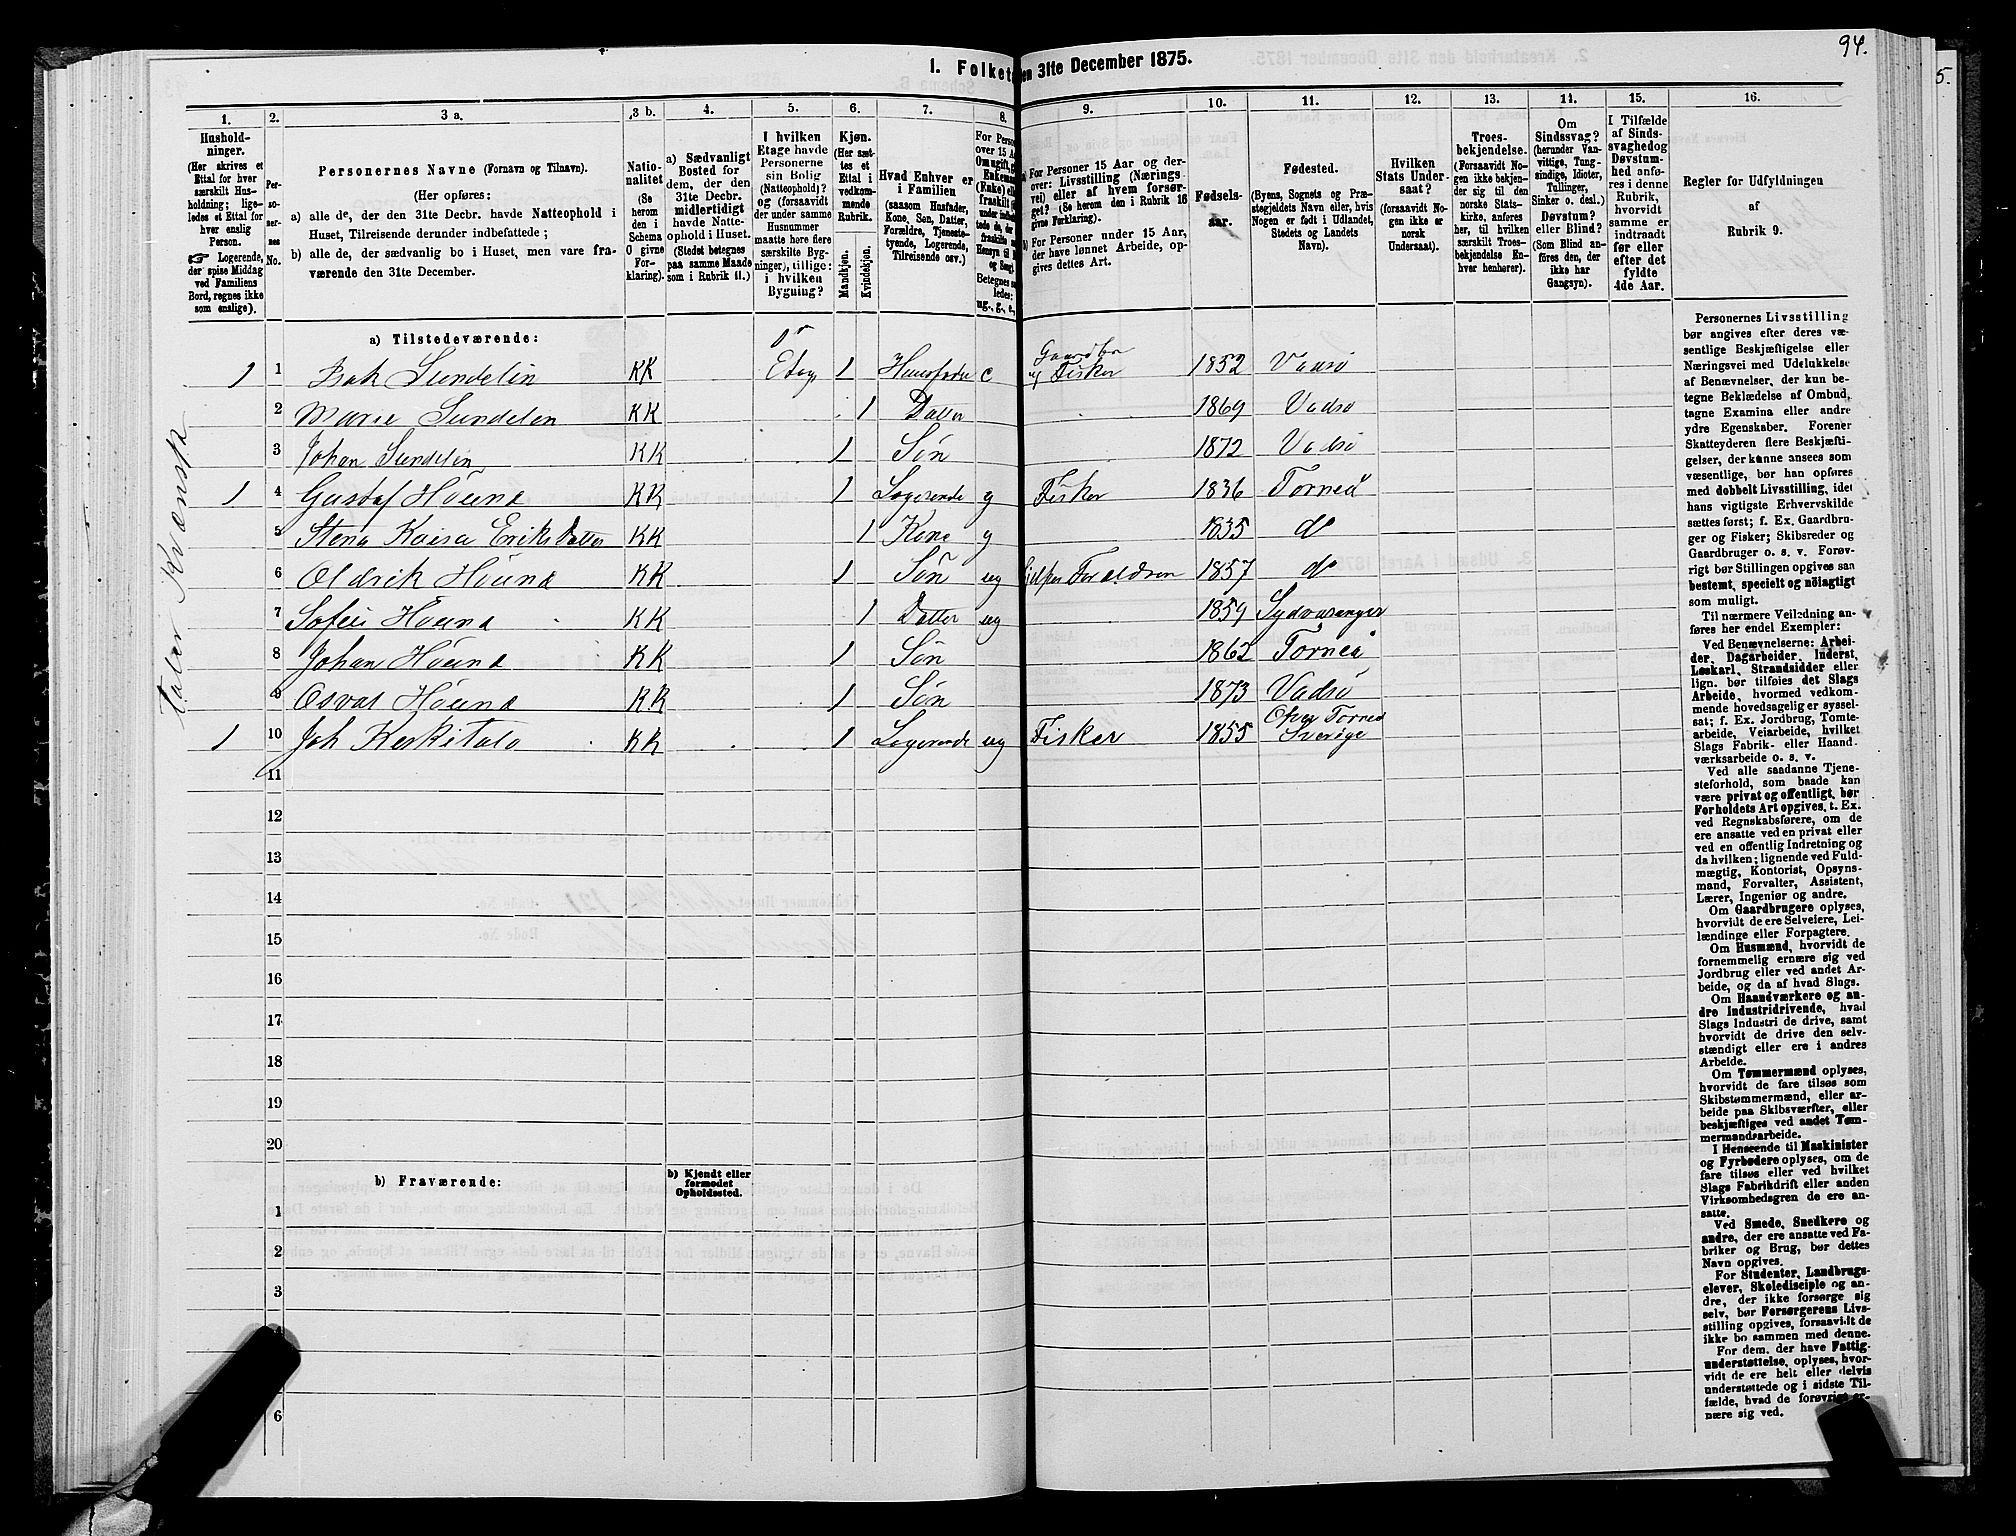 94.
5.
1. Folket
en 31te December 1875.
1.
2.
3 a.
3 b.
4.
5.
6.
7.
8.
9.
10.
11.
12.
13.
14.
15.
16.
Hushold-
ninger.
(Her skrives et
Ettal for hver
særskilt Hus-
holdning; lige-
ledes et Ettal for
hver enslig
Person.
☞ Logerende,
der spise Middag
ved Familiens
Bord, regnes ikke
som enslige).
Per-
so-
ner-
nes
No.
Personernes Navne (Fornavn og Tilnavn).
(Her opføres:
a) alle de, der den 31te Decbr. havde Natteophold i
Huset, Tilreisende derunder indbefattede;
b) alle de, der sædvanlig bo i Huset, men vare fra-
værende den 31te December.
Natio-
nalitet
(Se
herom
den i
Schema
O givne
For-
klaring).
a) Sædvanligt
Bosted for
dem, der den
31te Decbr.
midlertidigt
havde Natte-
ophold i Huset.
(Stedet betegnes
paa samme Maade
som i Rubrik 11.)
I hvilken
Etage havde
Personerne
sin Bolig
(Natteophold)?
og (forsaavidt
der under samme
Husnummer
maatte høre flere
særskilte Byg-
ninger), tillige:
i hvilken
Bygning?
Kjøn.
(Her sæt-
tes et
Ettal i
vedkom-
mende
Rubrik.
Mandkjøn.
Kvindekjøn.
Hvad Enhver er
i Familien
(saasom Husfader,
Kone, Søn, Datter,
Forældre, Tjeneste-
tyende, Logerende,
Tilreisende osv.)
For Perso
over 15 A
Om ugift, g
Enkema
(Enke) ell
fraskilt
Betegnes s
ledes:
ug., g., e.,
a) For Personer 15 Aar og der-
over: Livsstilling (Nærings-
vei) eller af hvem forsør-
get? (Se herom den i Rubrik 16
givne Forklaring).
b) For Personer under 15 Aar,
der have lønnet Arbeide, op-
gives dettes Art.
Fødsels-
aar.
Fødested.
(Byens, Sognets og Præ-
stegjeldets Navn eller, hvis
Nogen er født i Udlandet,
Stedets og Landets
Navn).
Hvilken
Stats Under-
saat?
(forsaavidt No-
gen ikke er
norsk
Undersaat).
Troes-
bekjendelse.
(Forsaavidt No-
gen ikke bekjen-
der sig til den
norske Stats-
kirke, anføres
her, til hvilken
særskilt Troes-
bekjendelse En-
hver henhører).
Om
Sindssvag?
(herunder Van-
vittige, Tung-
sindige, Idioter,
Tullinger,
Sinker o. desl.)
Døvstum?
eller Blind?
(Som Blind an-
føres den, der
ikke har
Gangsyn).
I Tilfælde
af Sinds-
svaghed og
Døvstum-
hed anfø-
res i denne
Rubrik,
hvorvidt
samme er
indtraadt
før eller
efter det
fyldte
4de Aar.
Regler for Udfyldningen
af
Rubrik 9.
a) Tilstedeværende:
1 1 Isak Sundelin KK Etag 1 Husfader e Gaardbr og Fisker 1852 Vadsø
2 Marie Sundelin KK 1 Datter 1869 Vadsø
3 Johan Sundelin KK 1 Søn 1872 Vadsø
1 4 Gustaf Höund KK 1 Logerende g Fisker 1836 Torneå
5 Stena Kaisa Eriks Datter KK 1 Kone g 1835 do
6 Oldrik Höund KK 1 Søn ug hjelper Foraldren 1857 do
7 Sofie Höund KK 1 Datter ug 1859 Sydvaranger
8 Johan Höund KK 1 Søn 1862 Torneå
9 Osvat Höund KK 1 Søn 1873 Vadsø
1 10 Joh Keskitalo KK 1 Logerende ug Fisker 1855 Öfver Torneå Sverige
taler Kvænsk
11
12
13
14
15
16
17
18
19
20
b) Fraværende:
b) Kjendt eller
formodet
Opholdssted.
1
2
3
4
6
Personernes Livsstilling
bør angives efter deres væ-
sentlige Beskjæftigelse eller
Næringsvei med Udelukkelse
af Benævnelser, der kun be-
tegne Beklædelse af Ombud,
tagne Examina eller andre
ydre Egenskaber. Forener
Skatteyderen flere Beskjæfti-
gelser, der kunne ansees som
væsentlige, bør han opføres
med dobbelt Livsstilling, idet
hans vigtigste Erhvervskilde
sættes først; f. Ex. Gaardbru-
ger og Fisker; Skibsreder og
Gaardbruger o. s. v. Forøv-
rigt bør Stillingen opgives saa
bestemt, specielt og nøiagtigt
som muligt.
Til nærmere Veiledning an-
føres her endel Exempler:
Ved Benævnelserne: Arbei-
der, Dagarbeider, Inderst,
Løskarl, Strandsidder eller
lign. bør tilføies det Slags
Arbeide, hvormed vedkom-
mende hovedsagelig er syssel-
sat; f. Ex. Jordbrug, Tomte-
arbeide, Veiarbeide, hvilket
Slags Fabrik- eller Haand-
værksarbeide o. s. v.
Ved alle saadanne Tjene-
steforhold, som baade kan
være privat og offentligt, bør
Forholdets Art opgives, t. Ex.
ved Regnskabsførere, om de
ere ansatte ved en privat eller
ved en offentlig Indretning og
da hvilken; lignende ved Fuld-
mægtig, Kontorist, Opsyns-
mand, Forvalter, Assistent,
Lærer, Ingeniør og andre.
Om Gaardbrugere oplyses,
hvorvidt de ere Selveiere, Lei-
lændinge eller Forpagtere.
Om Husmænd, hvorvidt de
fornemmelig ernære sig ved
Jordbrug eller ved andet Ar-
beide, og da af hvad Slags.
Om Haandværkere og an-
dre Industridrivende, hvad
Slags Industri de drive, samt
hvorvidt de drive den selv-
stændigt eller ere i andres
Arbeide.
Om Tømmermænd oplyses,
hvorvidt de fare tilsøs som
Skibstømmermænd, eller ar-
beide paa Skibsværfter, eller
beskjæftiges ved andet Tøm-
mermandsarbeide.
I Henseende til Maskinister
og Fyrbødere oplyses, om de
fare tilsøs eller ved hvilket
Slags Fabrikdrift eller anden
Virksomhedsgren de ere an-
satte.
Ved Smede, Snedkere og
andre, der ere ansatte ved Fa-
briker og Brug, bør dettes
Navn opgives.
For Studenter, Landbrugs-
elever, Skoledisciple og an-
dre, der ikke forsørge sig
selv, bør Forsørgerens Livs-
stilling opgives, forsaavidt de
ikke bo sammen med denne.
For dem, der have Fattig-
understøttelse, oplyses, hvor-
vidt de ere helt eller delvis
understøttede og i sidste Til-
fælde, hvad de forøvrigt er-
nære sig ved.